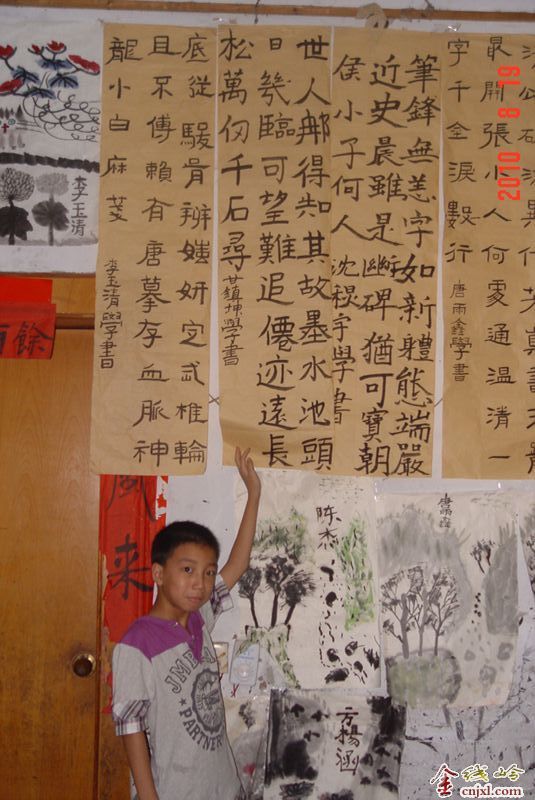 最開張小人何處通温清一
字千金淚數行
唐雨鑫學書
筆鋒無恙字如新體態端嚴
近史晨雖是斷碑猶可寶朝
侯小子何人
沈稞宇學書
世人那得知其故墨水池頭
日幾臨可望難追僊迹遠長
松萬仞千石尋
鎮坤學書
底從駿骨辨媸妍定武椎輪
且不傅賴有唐摹存血脈神
龍小白麻箋
李玉清學書
李玉清
餘
風来
陈杰
唐雨鑫
方楊涵
PARTNER
2010 8 19
金线岭
cnjxl.com